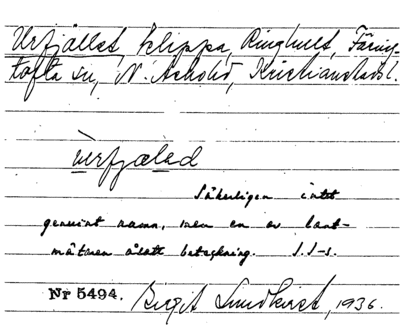 Urfjället, klippa, Ringhult, Färing-
tofta sn, N. Åsbohd, Kristianstads l.
ùrfjælad
Säkerligen intet
genuint namn, men en av lant-
mätaren åsatt beteckning. S.I-s.
Nr 5494. Birgit Sundkvist, 1936.